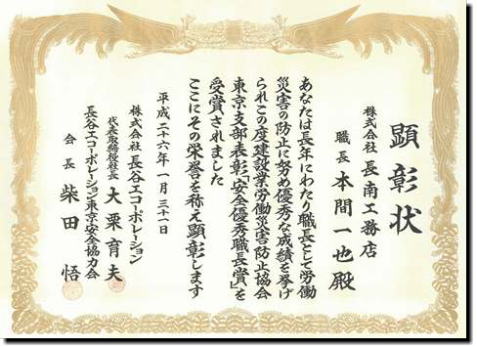 顕彰状
株式会社 長南工務店
職長 本間一也殿
あなたは長年にわたり職長として労働
災害の防止に努め優秀な成績を挙げ
られこの度建設業労働災害防止協会
東京支部表彰「安全優秀職長賞」を
受賞されました
ここにその栄誉を称え顕彰します
平成二十六年一月三十一日
株式会社 長谷工コーポレーション
代表取締役社長 大栗育夫
長谷工コーポレーション東京安全協力会
会長 柴田 悟